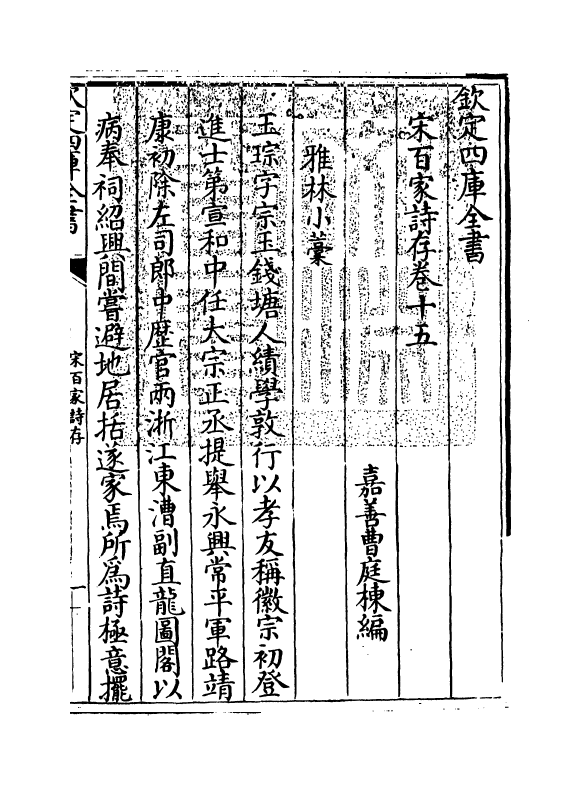 欽定四庫全書
宋百家詩存卷十五
嘉善曹庭棟編
雅林小藁
王琮字宗玉錢塘人績學敦行以孝友稱徽宗初登
進士第宣和中任大宗正丞提舉永興常平軍路靖
康初除左司郎中歴官兩浙江東漕副直龍圖閣以
病奉祠紹興間嘗避地居括遂家焉所為詩極意擺
欽定四庫全書
宋百家詩存
一